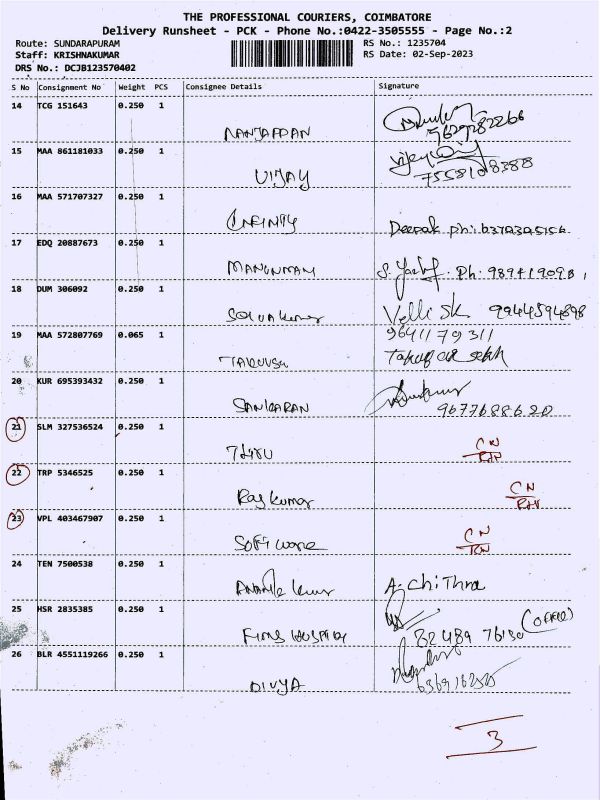 THE PROFESSIONAL COURIERS, COIMBATORE
Delivery Runsheet - PCK - Phone No.:0422-3505555 - Page No.:2
Route: SUNDARAPURAM RS No.: 1235704
Staff: KRISHNAKUMAR RS Date: 02-Sep-2023
DRS No.: DCJB123570402
S No Consignment No Weight PCS Consignee Details Signature
14 TCG 151643 0.250 1
NANJAPPAN 9629282266
15 MAA 861181033 0.250 1
VIJAY Vijay 7558108388
16 MAA 571707327 0.250 1
INFINITY Deepak ph:
17 EDQ 20887673 0.250 1
S. Ph:
18 DUM 306092 0.250 1
Selvakumar Velli Sk 9944594898
19 MAA 572807769 0.065 1 9641179311
20 KUR 695393432 0.250 1
SANKARAN 9677688620
21 SLM 327536524 0.250 1
CN
22 TRP 5346525 0.250 1
Raj kumar CN
23 VPL 403467907 0.250 1
Software CN
24 TEN 7500538 0.250 1
Anand kumar A. Chithra
25 HSR 2835385 0.250 1
82489 76130 (OFFICE)
26 BLR 4551119266 0.250 1
DIVYA
3